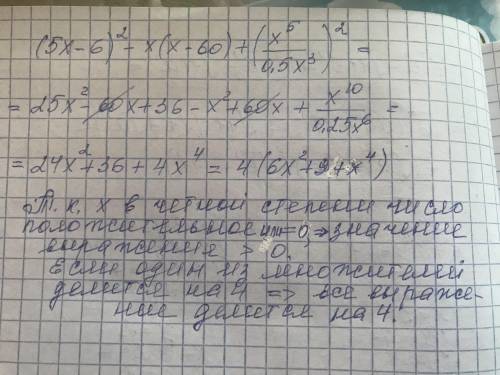 (5x-6)² - x(x-60) + (x⁵/0,5x³)² =
= 25x² - 60x + 36 - x² + 60x + x¹⁰/0,25x⁶ =
= 24x² + 36 + 4x⁴ = 4(6x² + 9 + x⁴)
Т. к. х в четной степени число
положительное или = 0, => значение
выражения > 0.
Если один из множителей
делится на 4 => все выраже-
ние делится на 4.